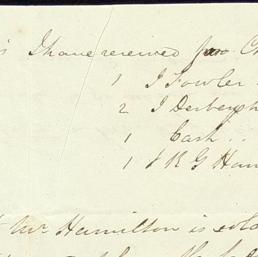 I have received from
1 J Fowler
2 J Derbergh
1 Cash ..
1 J R G Ham
Mr Hamilton is sold